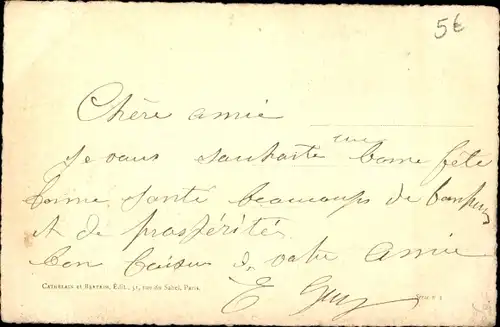 5€
Chère amie
une
je vous souhaite bonne fête
bonne santé beaucoups de bonheur
et de prospérités
bon baiser de votre amie
E Guy
CATHELAIN ET BERTRIN, Édit., 51, rue du Sahel, Paris.